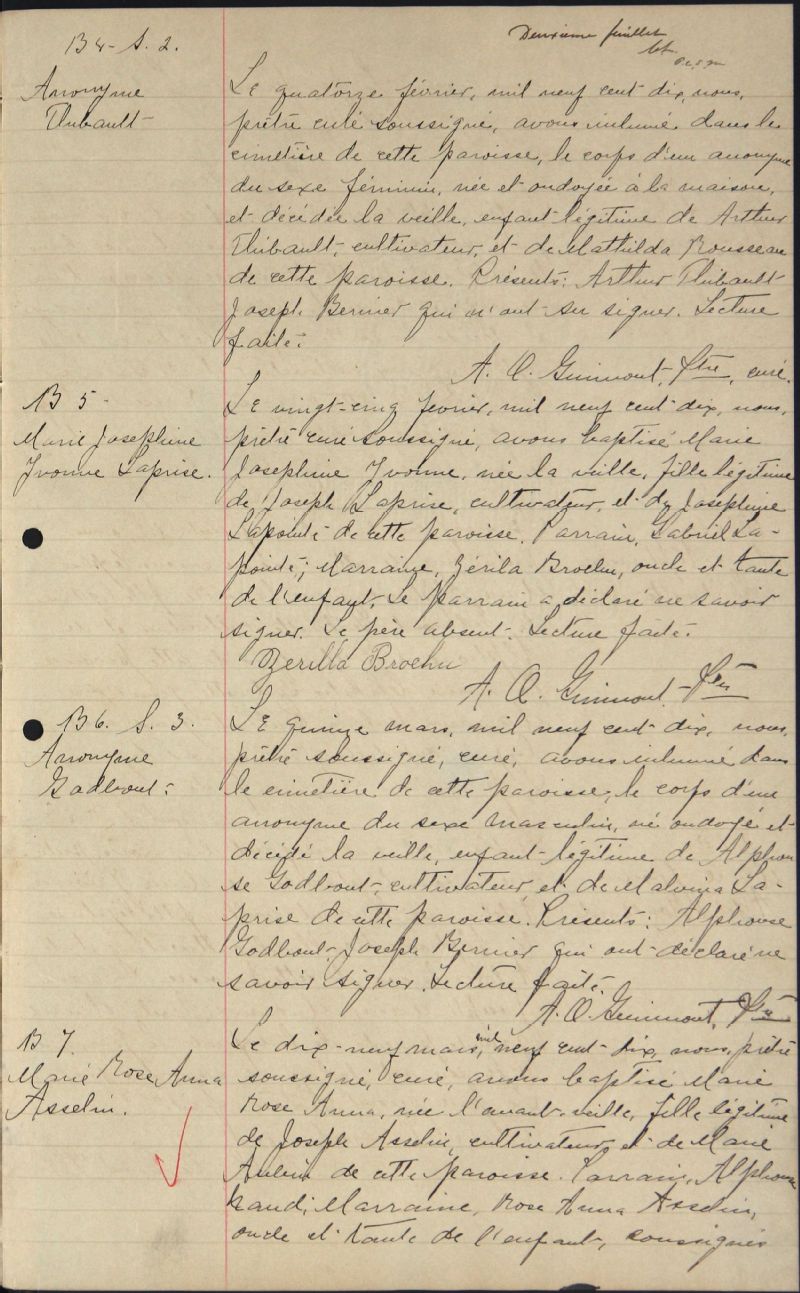 Deuxième feuillet
B4 - S. 2.
Anonyme
Thibault
Le quatorze février, mil neuf cent dix, nous,
prêtre curé soussigné, avons inhumé dans le
cimetière de cette paroisse, le corps d'un anonyme
du sexe féminin, née et ondoyée à la maison,
et décédée la veille, enfant légitime de Arthur
Thibault, cultivateur, et de Mathilda Rousseau
de cette paroisse. Présents: Arthur Thibault
Joseph Bernier qui n'ont su signer. Lecture
faite.
A. O. Guimont, Ptre, curé.
B 5 -
Marie Josephine
Yvonne Laprise.
Le vingt-cinq février, mil neuf cent dix, nous,
prêtre curé soussigné, avons baptisé Marie
Josephine Yvonne, née la veille, fille légitime
de Joseph Laprise, cultivateur, et de Josephine
Lapointe de cette paroisse. Parrain, Gabriel La-
pointe; Marraine, Zérila Brochu, oncle et tante
de l'enfant. Le parrain a déclaré ne savoir
signer. Le père absent. Lecture faite.
Zerilla Brochu
A. O. Guimont Ptre
B6. S. 3.
Anonyme
Godbout
Le quinze mars, mil neuf cent dix, nous,
prêtre soussigné, curé, avons inhumé dans
le cimetière de cette paroisse, le corps d'un
anonyme du sexe masculin, né ondoyé et
décédé la veille, enfant légitime de Alphon
se Godbout, cultivateur, et de Malvina La-
prise de cette paroisse. Présents: Alphonse
Godbout, Joseph Bernier qui ont déclaré ne
savoir signer. Lecture faite.
A. O. Guimont, Ptre
B 7
Marie Rose Anna
Asselin.
Le dix-neuf mars, mil neuf cent dix, nous, prêtre
soussigné, curé, avons baptisé Marie
Rose Anna, née l'avant-veille, fille légitime
de Joseph Asselin, cultivateur, et de Marie
Aubin de cette paroisse. Parrain, Alphonse
Marraine, Rose Anna Asselin,
oncle et tante de l'enfant, soussignés